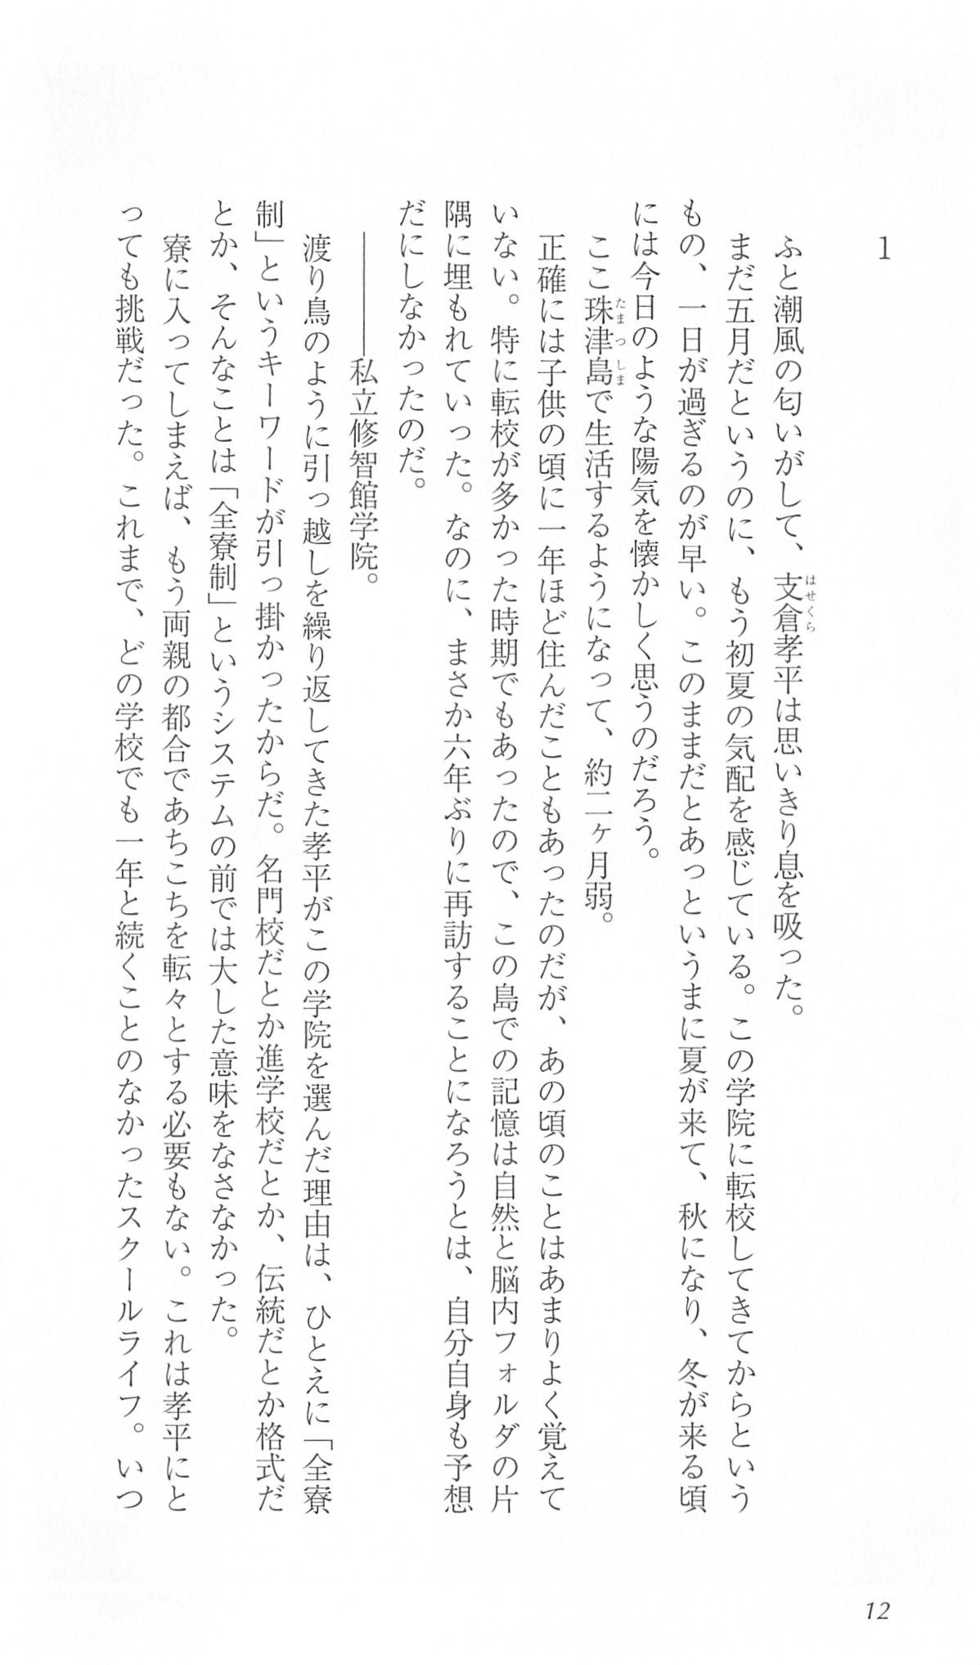 1
ふと潮風の匂いがして、支倉孝平は思いきり息を吸った。
まだ五月だというのに、もう初夏の気配を感じている。この学院に転校してきてからという
もの、一日が過ぎるのが早い。このままだとあっというまに夏が来て、秋になり、冬が来る頃
には今日のような陽気を懐かしく思うのだろう。
ここ珠津島で生活するようになって、約二ヶ月弱。
正確には子供の頃に一年ほど住んだこともあったのだが、あの頃のことはあまりよく覚えて
いない。特に転校が多かった時期でもあったので、この島での記憶は自然と脳内フォルダの片
隅に埋もれていった。なのに、まさか六年ぶりに再訪することになろうとは、自分自身も予想
だにしなかったのだ。
――――私立修智館学院。
渡り鳥のように引っ越しを繰り返してきた孝平がこの学院を選んだ理由は、ひとえに「全寮
制」というキーワードが引っ掛かったからだ。名門校だとか進学校だとか、伝統だとか格式だ
とか、そんなことは「全寮制」というシステムの前では大した意味をなさなかった。
寮に入ってしまえば、もう両親の都合であちこちを転々とする必要もない。これは孝平にと
っても挑戦だった。これまで、どの学校でも一年と続くことのなかったスクールライフ。いつ
12